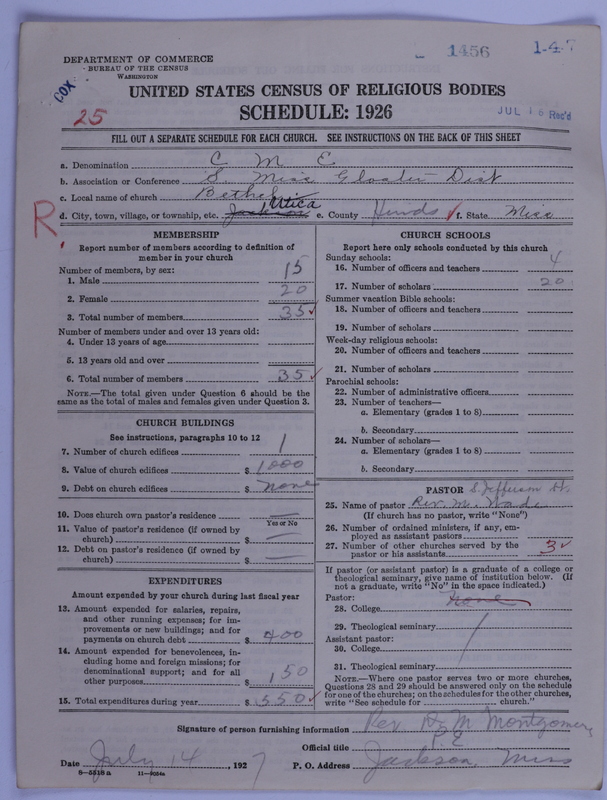 1456 1-4-7
DEPARTMENT OF COMMERCE
BUREAU OF THE CENSUS
WASHINGTON
COX
25
UNITED STATES CENSUS OF RELIGIOUS BODIES
SCHEDULE: 1926
JUL 16 Rec'd
FILL OUT A SEPARATE SCHEDULE FOR EACH CHURCH. SEE INSTRUCTIONS ON THE BACK OF THIS SHEET
a. Denomination C M E
b. Association or Conference S. Miss Gloster Dist
c. Local name of church Bethel
d. City, town, village, or township, etc. Jackson Utica e. County Hinds f. State Miss
R
MEMBERSHIP
Report number of members according to definition of member in your church
Number of members, by sex:
1. Male 15
2. Female 20
3. Total number of members 35
Number of members under and over 13 years old:
4. Under 13 years of age
5. 13 years old and over
6. Total number of members 35
NOTE.—The total given under Question 6 should be the same as the total of males and females given under Question 3.
CHURCH BUILDINGS
See instructions, paragraphs 10 to 12
7. Number of church edifices 1
8. Value of church edifices $ 1000
9. Debt on church edifices $ none
10. Does church own pastor's residence —
Yes or No
11. Value of pastor's residence (if owned by church) $ —
12. Debt on pastor's residence (if owned by church) $ —
EXPENDITURES
Amount expended by your church during last fiscal year
13. Amount expended for salaries, repairs, and other running expenses; for improvements or new buildings; and for payments on church debt $ 400
14. Amount expended for benevolences, including home and foreign missions; for denominational support; and for all other purposes $ 150
15. Total expenditures during year $ 550
CHURCH SCHOOLS
Report here only schools conducted by this church
Sunday schools:
16. Number of officers and teachers 4
17. Number of scholars 20
Summer vacation Bible schools:
18. Number of officers and teachers
19. Number of scholars
Week-day religious schools:
20. Number of officers and teachers
21. Number of scholars
Parochial schools:
22. Number of administrative officers
23. Number of teachers—
a. Elementary (grades 1 to 8)
b. Secondary
24. Number of scholars—
a. Elementary (grades 1 to 8)
b. Secondary
PASTOR S. Jefferson St.
25. Name of pastor Rev. M. Wade
(If church has no pastor, write "None")
26. Number of ordained ministers, if any, employed as assistant pastors
27. Number of other churches served by the pastor or his assistants 3
If pastor (or assistant pastor) is a graduate of a college or theological seminary, give name of institution below. (If not a graduate, write "No" in the space indicated.)
Pastor:
28. College None
29. Theological seminary
Assistant pastor:
30. College
31. Theological seminary
NOTE.—Where one pastor serves two or more churches, Questions 28 and 29 should be answered only on the schedule for one of the churches; on the schedules for the other churches, write "See schedule for church."
Signature of person furnishing information Rev H. M. Montgomery
Official title P. E
Date July 14, 1927 P. O. Address Jackson Miss
8-5518a 11-9034a